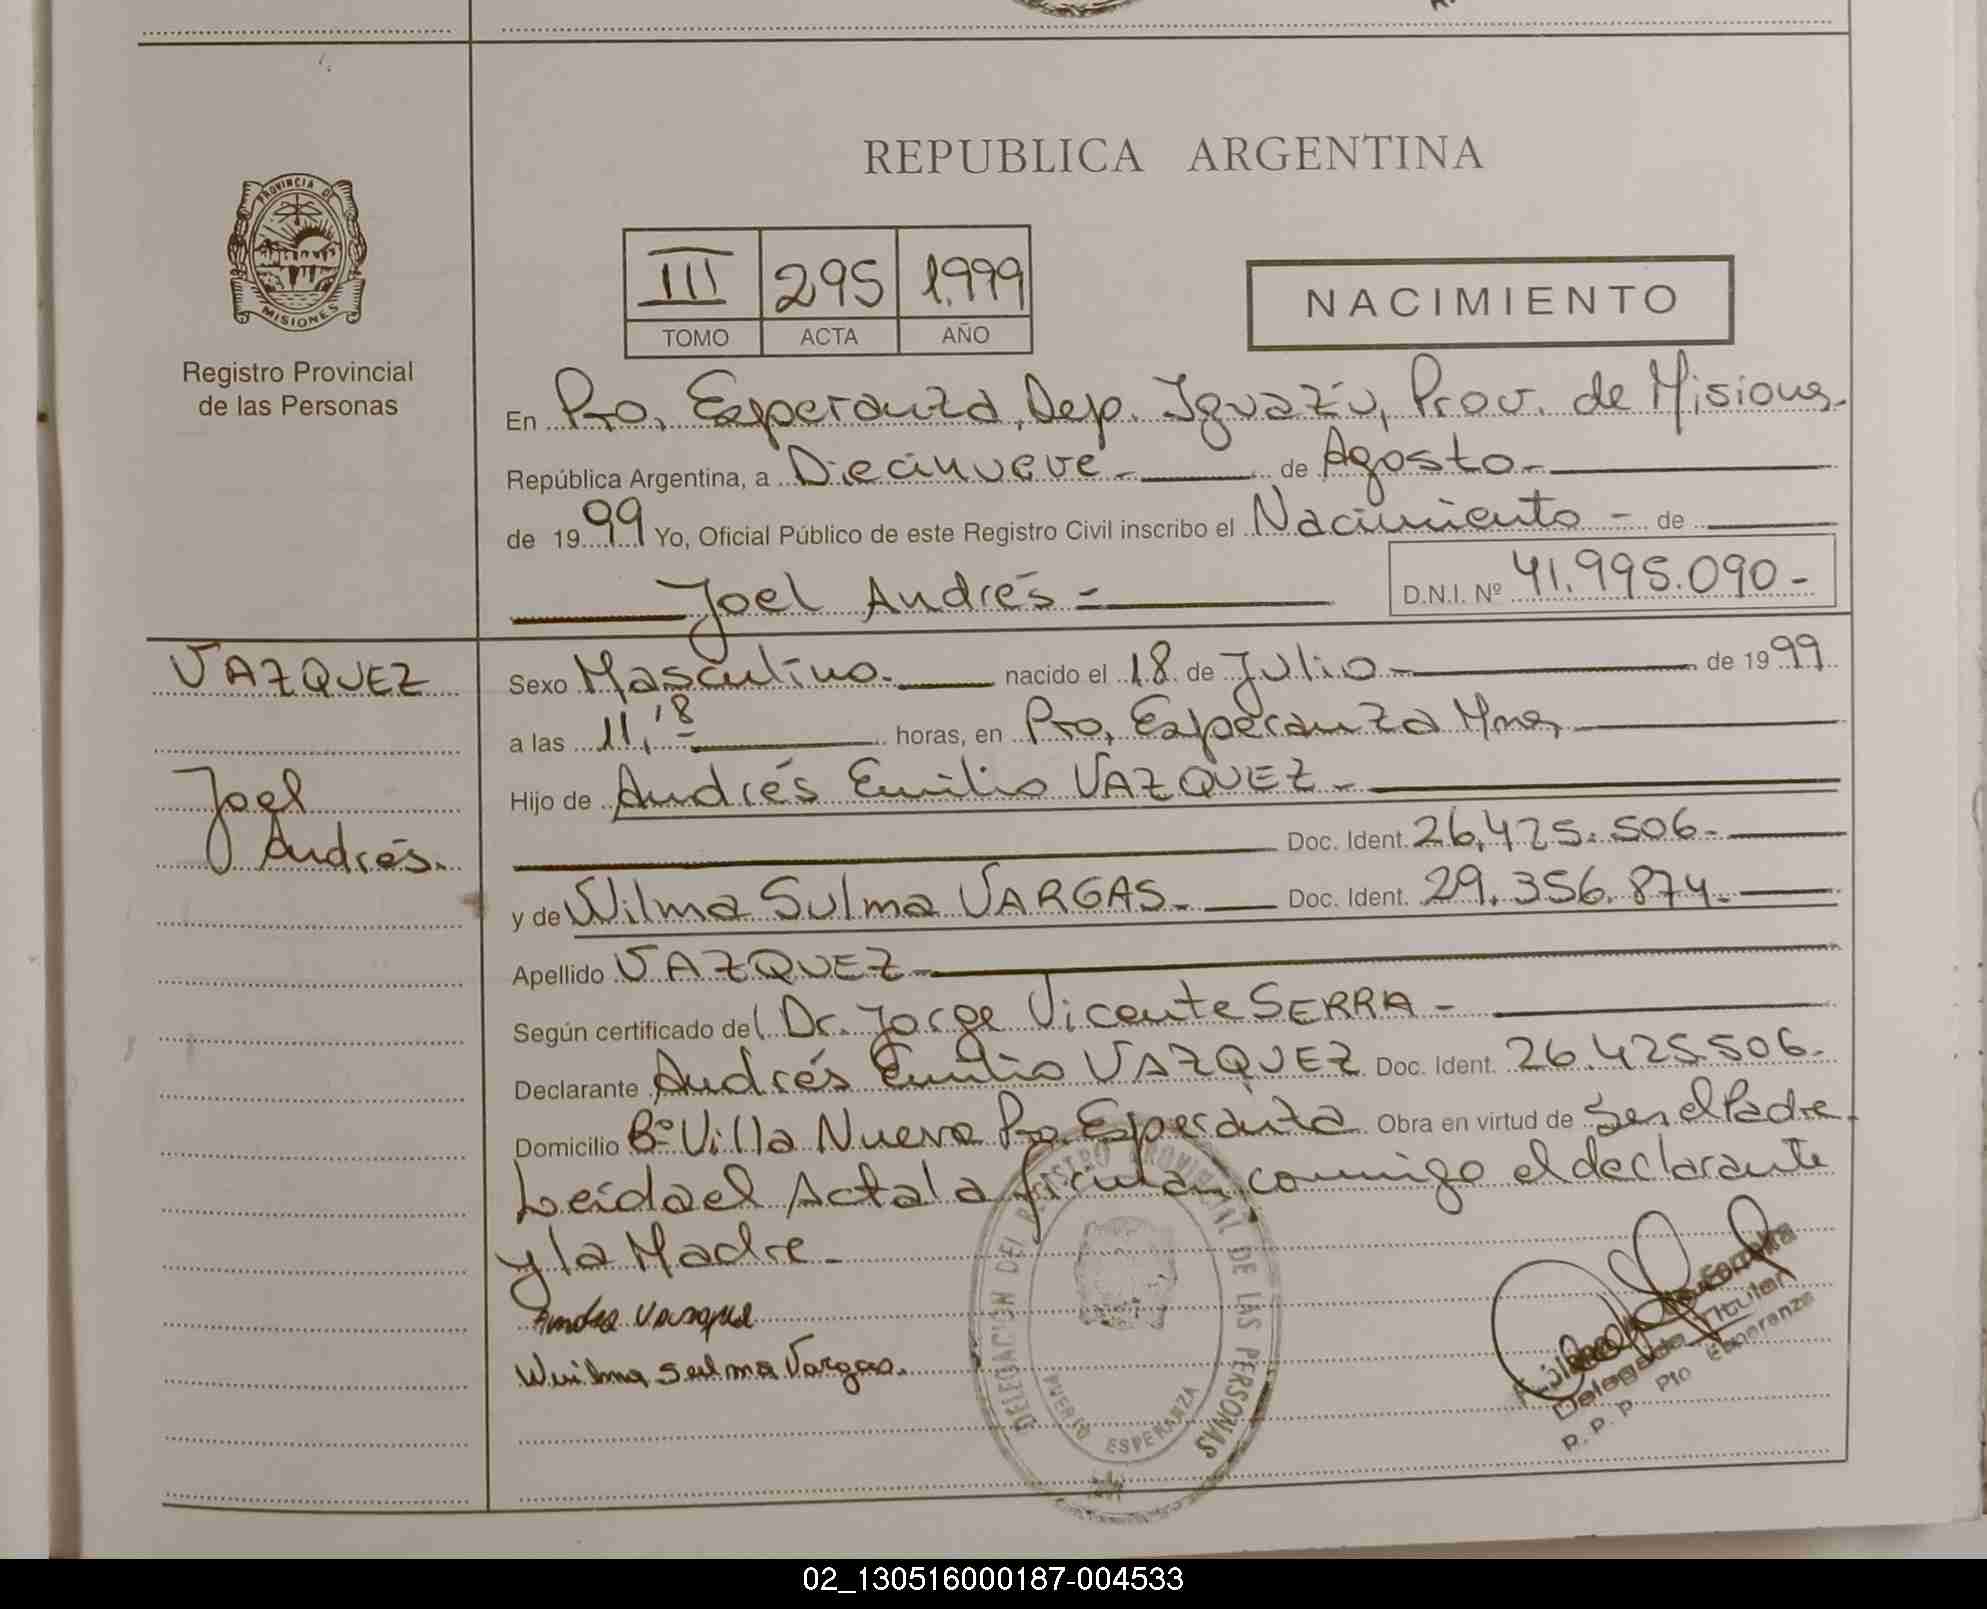 PROVINCIA DE
MISIONES
Registro Provincial
de las Personas
REPUBLICA ARGENTINA
III 295 1.999
TOMO ACTA AÑO
NACIMIENTO
En Pto, Esperanza, Dep. Iguazú, Prov. de Misiones.
República Argentina, a Diecinueve - de Agosto -
de 1999 Yo, Oficial Público de este Registro Civil inscribo el Nacimiento - de
Joel Andrés - D.N.I. Nº 41.995.090 -
VAZQUEZ
Joel
Andrés.
Sexo Masculino. nacido el 18 de Julio - de 1999
a las 11,18 horas, en Pto, Esperanza Mnes,
Hijo de Andrés Emilio VAZQUEZ -
Doc. Ident. 26.425.506 -
y de Wilma Sulma VARGAS - Doc. Ident. 29.356.874. -
Apellido VAZQUEZ -
Según certificado del Dr. Jorge Vicente SERRA -
Declarante Andrés Emilio VAZQUEZ Doc. Ident. 26.425.506 -
Domicilio Bº Villa Nueva Pto. Esperanza Obra en virtud de Ser el Padre.
Leida el Acta la firman conmigo el declarante
y la Madre -
Wuilma Sulma Vargas.
DELEGACION DEL REGISTRO PROVINCIAL DE LAS PERSONAS
PUERTO ESPERANZA
Delegada Titular
R. P. P. Pto Esperanza
02_130516000187-004533